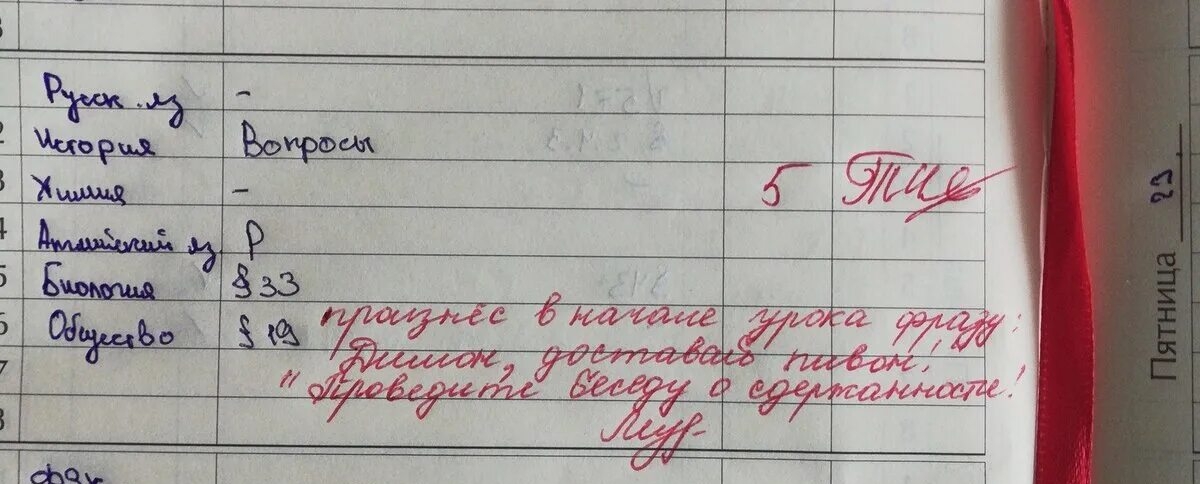 Русск. яз -
2 История Вопросы
3 Химия - 5
4 Английский яз P
5 Биология § 33
6 Общество § 19
произнёс в начале урока фразу:
"Димон, доставай пивон!"
Проведите беседу о сдержанности!
7
8
физ
Пятница 29